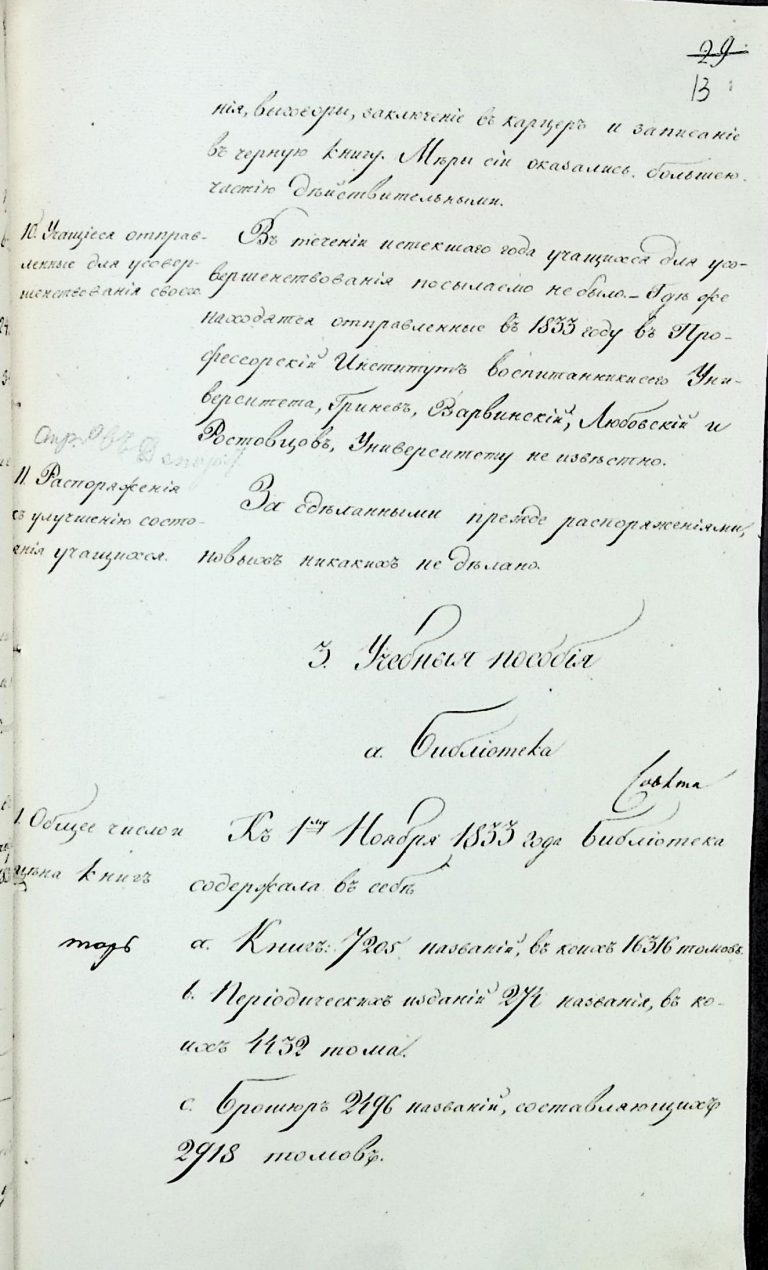 29
13
нія, выговоры, заключеніе въ карцеръ и записаніе
въ черную книгу. Мѣры сіи оказались большею
частію дѣйствительными.
10. Учащіеся отправ-
ленные для усовер-
шенствованія своего
Въ теченіи истекшаго года учащихся для усо-
вершенствованія посылаемо не было. – Гдѣ же
находятся отправленные въ 1833 году въ Про-
фессорскій Институтъ воспитанники сего Уни-
верситета, Гриневъ, Варвинскій, Любовскій и
Ростовцовъ, Университету не извѣстно.
11. Распоряженія
къ улучшенію состо-
янія учащихся.
За сдѣланными прежде распоряженіями,
новыхъ никакихъ не дѣлано.
3. Учебныя пособія
а. Библіотека
Совѣта
1. Общее число и
цѣна книгъ
Къ 1му Ноября 1833 года Библіотека
содержала въ себѣ
а. Книгъ: 7205 названій, въ коихъ 16316 томовъ.
b. Періодическихъ изданій 274 названія, въ ко-
ихъ 4432 тома.
с. Брошюръ 2496 названій, составляющихъ
2918 томовъ.